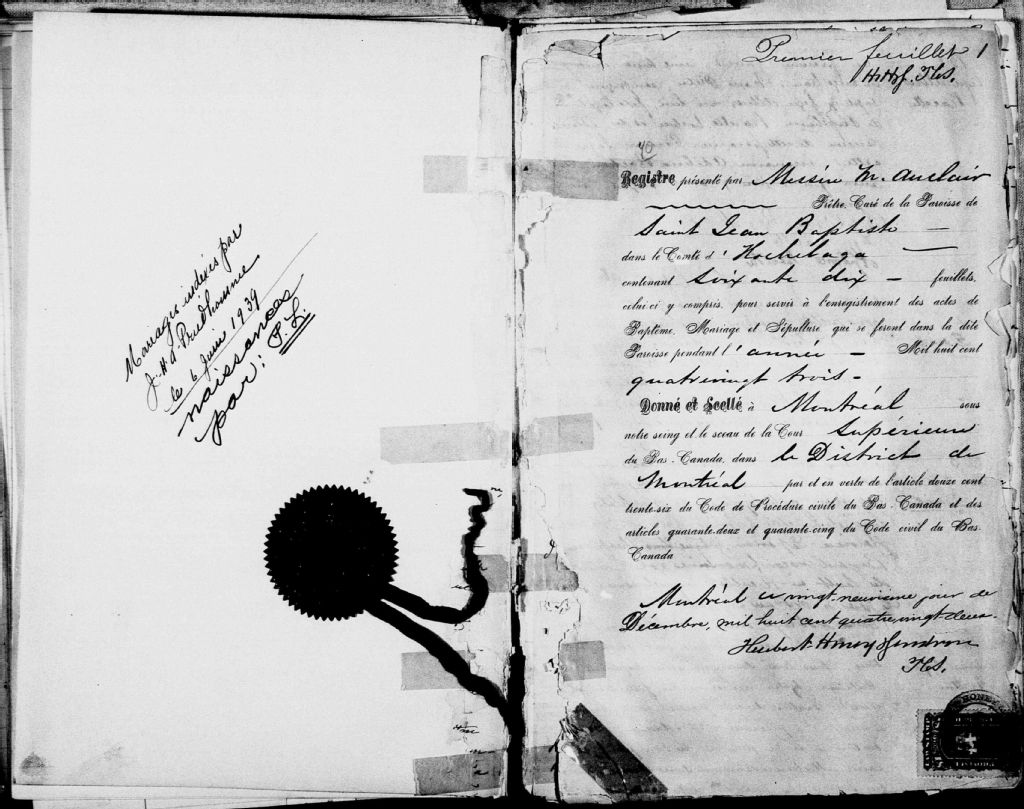 Mariages indexés par
J. H. A. Prudhomme
le 6 Juin 1939
naissances
par: P. L.
Premier feuillet 1
Registre présenté par Messire M. Auclair
Prêtre, Curé de la Paroisse de
Saint Jean Baptiste
dans le Comté d'Hochelaga
contenant Soixante dix - feuillets,
celui-ci y compris, pour servir à l'enregistrement des actes de
Baptême, Mariage et Sépulture, qui se feront dans la dite
Paroisse pendant l'année - Mil huit cent
quatrevingt trois -
Donné et Scellé à Montréal sous
notre seing et le sceau de la Cour Supérieure
du Bas-Canada, dans le District de
Montréal par et en vertu de l'article douze cent
trente-six du Code de Procédure civile du Bas-Canada et des
articles quarante-deux et quarante-cinq du Code civil du Bas-
Canada
Montréal ce vingt-neuvième jour de
Décembre, mil huit cent quatre-vingt-deux.